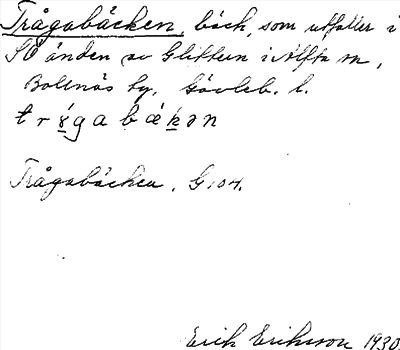 Trågabäcken, bäck, som utfaller i
SO änden av Glitten i Alfta sn,
Bollnäs tg, Gävleb. l.
trɤgabækən
Trågabäcken. G 104.
Erik Eriksson 1930.